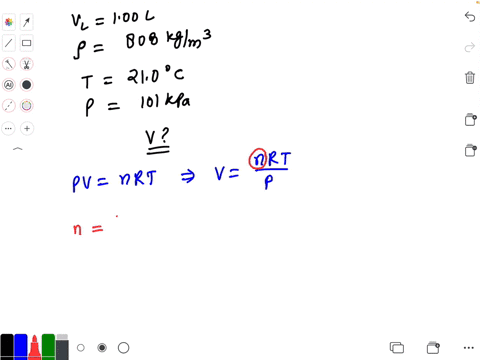 V_L = 1.00 L
ρ = 808 kg/m³
T = 21.0°C
P = 101 kPa
V?
PV = nRT ⇒ V = nRT/P
n =